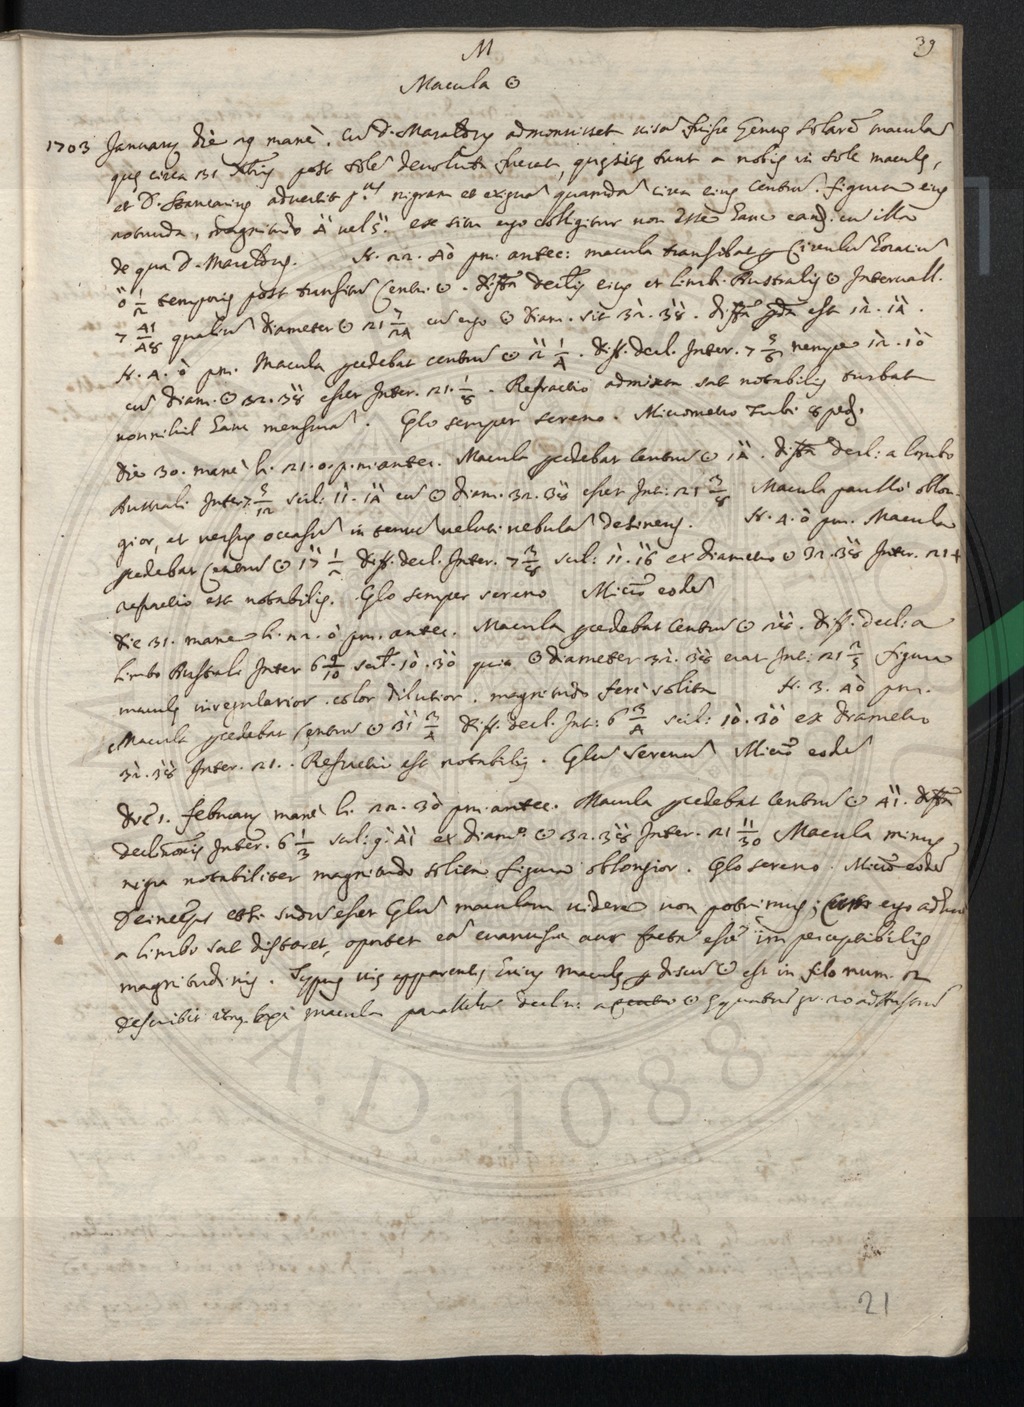 39
M
Macula ☉
1703 January die 29 manè. Cum D. Maraldus admonuisset visam fuisse Genuę solarem maculam
quę circa 31 Xbris post Solem devoluta fuerat, quęsitę sunt a nobis in Sole maculę,
et D. Stancarius advertit nigram et exiguam quamdam circa eius centrum. figura eius
rotunda, magnitudo 4" vel 5". ex situ ergo colligitur non esse hanc eand. cum illa
de qua D. Maraldus. H. 22. 40 pm. antec: macula transibat per Circulum horarium
0" 1/2 temporis post transitum Centri ☉. diffa declis eius et limbi Australis ☉ Intervall.
7 41/48 qualium diameter ☉ 21 7/24 cum ergo ☉ diam. sit 32'. 38". diffa pda est 12'. 14".
H. 4. 0' pm. Macula pcedebat centrum ☉ 2" 1/4. diff. decl. Inter. 7 5/6 nempe 12'. 10"
cum diam. ☉ 32'. 38" esset Inter. 21. 1/8. Refractio admixta sat notabilis turbat
nonnihil hanc mensuram. Cęlo semper sereno. Micrometro Tubi 8 ped.
die 30. manè h. 21. 0. p. m. antec. Macula pcedebat Centrum ☉ 14". diffa decl: a limbo
Australi Inter. 7 5/12 scil: 11'. 14" cum ☉ diam. 32'. 38" esset Int: 21 3/8 Macula paullò oblon-
gior, et versus occasum in tenuem veluti nebulam desinens. H. 4. 0' pm. Macula
pcedebat Centrum ☉ 17" 1/2 diff. decl. Inter. 7 3/8 scil: 11'. 16" ex diametro ☉ 32'. 38" Inter. 21+
refractio est notabilis. Cęlo semper sereno Micro eodem
die 31. mane h. 22. 0' pm. antec. Macula pcedebat Centrum ☉ 28". diff. decl: a
limbo Australi Inter 6 9/10 scil. 10'. 30" quia ☉ diameter 32'. 38" erat Int: 21 2/5 figura
maculę irregularior. color dilutior. magnitudo ferè solita H. 3. 40' pm.
Macula pcedebat Centrum ☉ 31" 3/4 diff. decl. Int: 6 3/4 scil: 10'. 30" ex diametro
32'. 38" Inter. 21. Refractio est notabilis. Cęlum serenum Micro eodem
die 1. february manè h. 22. 30' pm. antec. Macula pcedebat Centrum ☉ 41". diffa
declinonis Inter. 6 1/3 scil: 9'. 41" ex diamo ☉ 32'. 38" Inter. 21 11/30 Macula minus
nigra notabiliter magnitudo solita figura oblongior. Cęlo sereno. Micro eodem
Deinceps etsi sudum esset Cęlum maculam videre non potuimus; Cum ergo adhuc
a limbo sat distaret, oportet eam evanuisse aut factam esse imperceptibilis
magnitudinis. Typus vię apparentis huius maculę p discum ☉ est in folo num. 2
describit macula parallelum decln: a centro ☉ gr. 20 ad Austrum
21
A.D. 1088